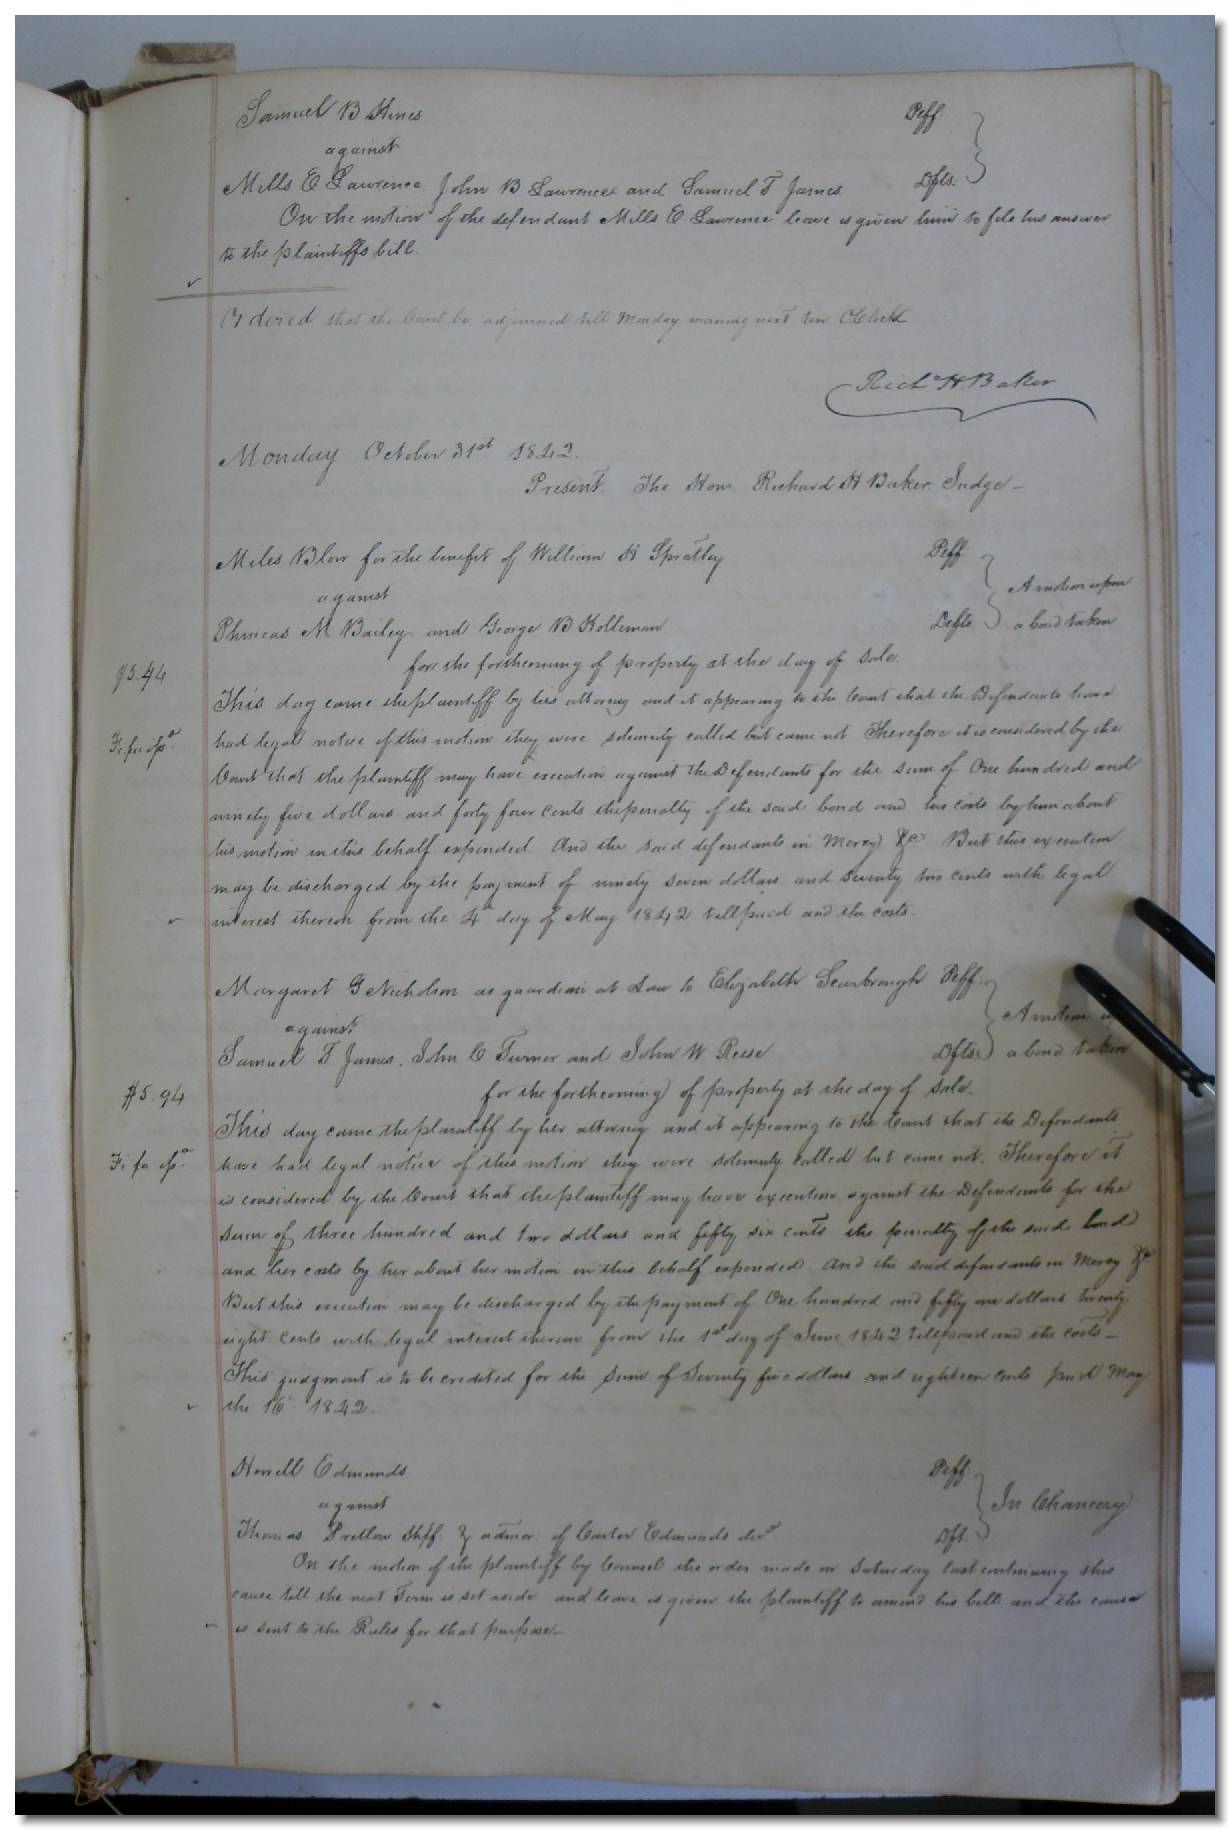 Samuel B Hines Plff.
against
Mills E Lawrence, John B Lawrence and Samuel T James Dfts.
On the motion of the defendant Mills E Lawrence leave is given him to file his answer
to the plaintiffs bill.
Ordered that the Court be adjourned till Monday morning next ten OClock
Richd H. Baker
Monday October 31st 1842.
Present. The Hon. Richard H Baker Judge –
Miles Blow for the benefit of William H Spratley Plff
against A motion upon
Phineas M Bailey and George B Holleman Defts. a bond taken
for the forthcoming of property at the day of sale.
$5.44
This day came the plaintiff by his attorney and it appearing to the Court that the Defendants have
Fi. fa. ipd.
had legal notice of this motion they were solemnly called but came not Therefore it is considered by the
Court that the plaintiff may have execution against the Defendants for the sum of One hundred and
ninety five dollars and forty four cents the penalty of the said bond and his costs by him about
his motion in this behalf expended. And the said defendants in Mercy &c But this execution
may be discharged by the payment of ninety seven dollars and seventy two cents with legal
interest thereon from the 4th day of May 1842 till paid and the costs.
Margaret G Nicholson as guardian at Law to Elizabeth Scarbrough Plff.
against A motion
Samuel T James, John C Turner and John W Reese Dfts. a bond taken
for the forthcoming of property at the day of sale.
$5.94
This day came the plaintiff by her attorney and it appearing to the Court that the Defendants
Fi fa ipd.
have had legal notice of this motion they were solemnly called but came not. Therefore it
is considered by the Court that the plaintiff may have execution against the Defendants for the
sum of three hundred and two dollars and fifty six cents the penalty of the said bond
and her costs by her about her motion in this behalf expended. And the said defendants in Mercy &c
But this execution may be discharged by the payment of One hundred and fifty one dollars twenty
eight cents with legal interest thereon from the 1st day of June 1842 till paid and the costs –
This judgment is to be credited for the sum of Seventy five dollars and eighteen cents paid May
the 16th 1842.
Howell Edmunds Plff.
against In Chancery
Thomas Pretlow Shff. & admor. of Carter Edmunds decd Dft.
On the motion of the plaintiff by Counsel the order made on Saturday last continuing this
cause till the next Term is set aside and leave is given the plaintiff to amend his bill and the cause
is sent to the Rules for that purpose –